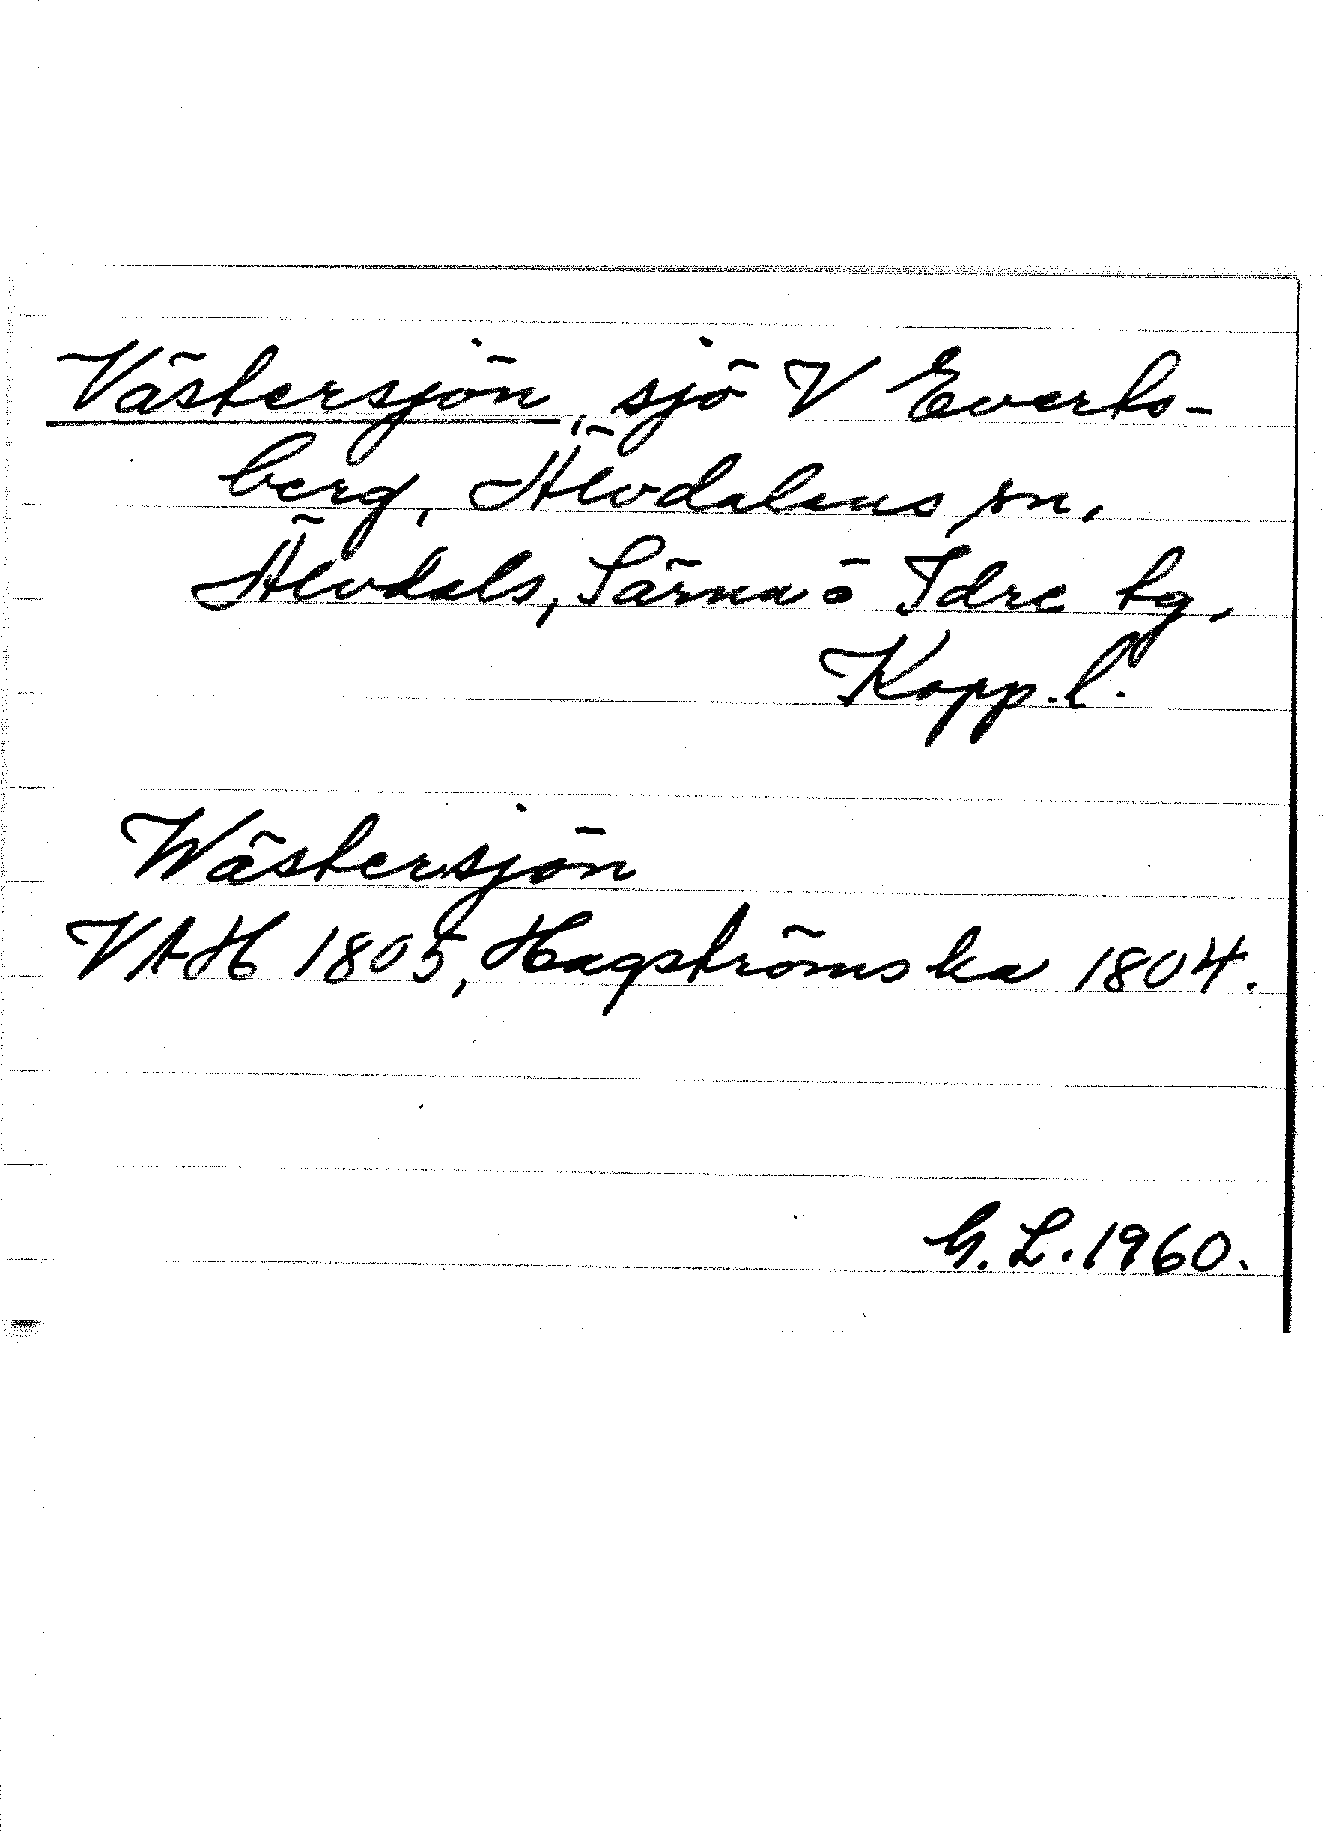 Västersjön, sjö V Everts-
berg, Älvdalens sn,
Älvdals, Särna ö Idre tg,
Kopp. l.
Wästersjön
VAH 1805, Hagströmska 1804.
G. L. 1960.